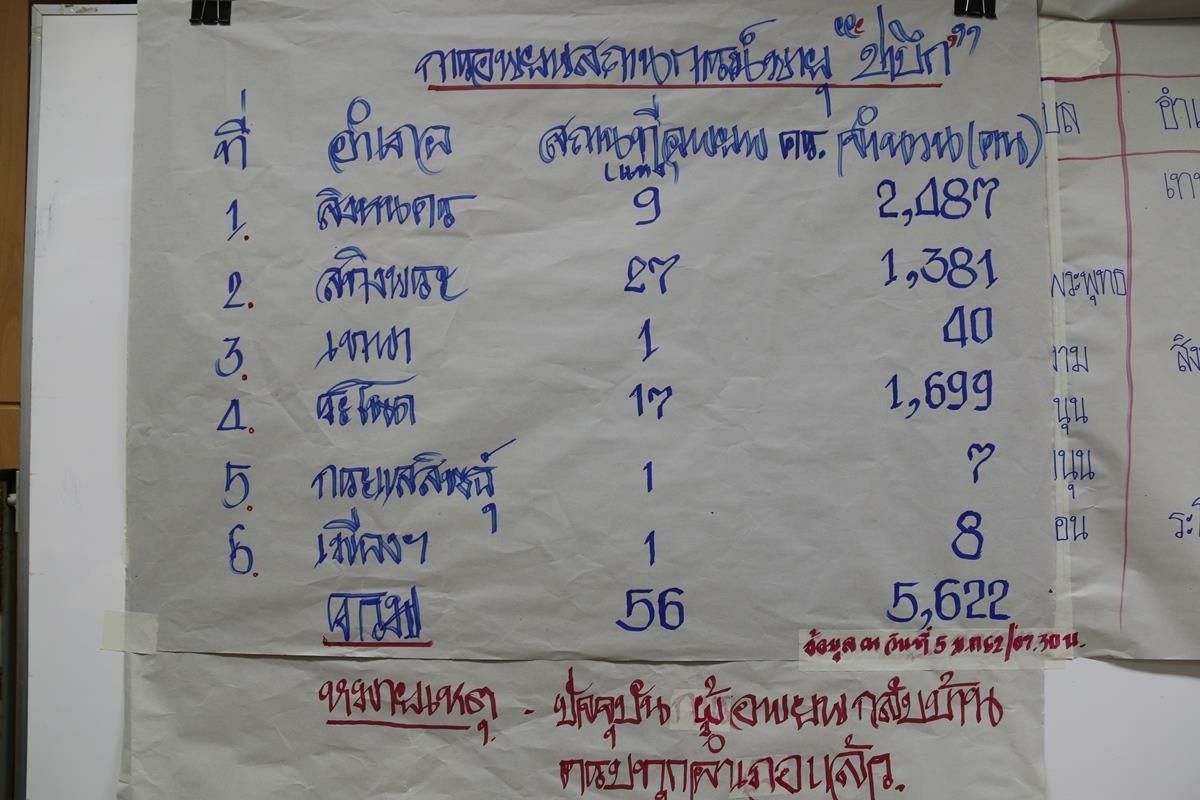 การอพยพสถานการณ์พายุ "ปาบึก"
ที่ อำเภอ สถานที่อพยพ คร. จำนวน(คน)
(แห่ง)
1. สิงหนคร 9 2,487
2. สทิงพระ 27 1,381
3. เทพา 1 40
4. ระโนด 17 1,699
5. กระแสสินธุ์ 1 7
6. เมืองฯ 1 8
รวม 56 5,622
ข้อมูล ณ วันที่ 5 ม.ค 62/07.30 น.
หมายเหตุ - ปัจจุบัน ผู้อพยพกลับบ้าน
ครบทุกอำเภอแล้ว.
พระพุทธ
งาม
นุน